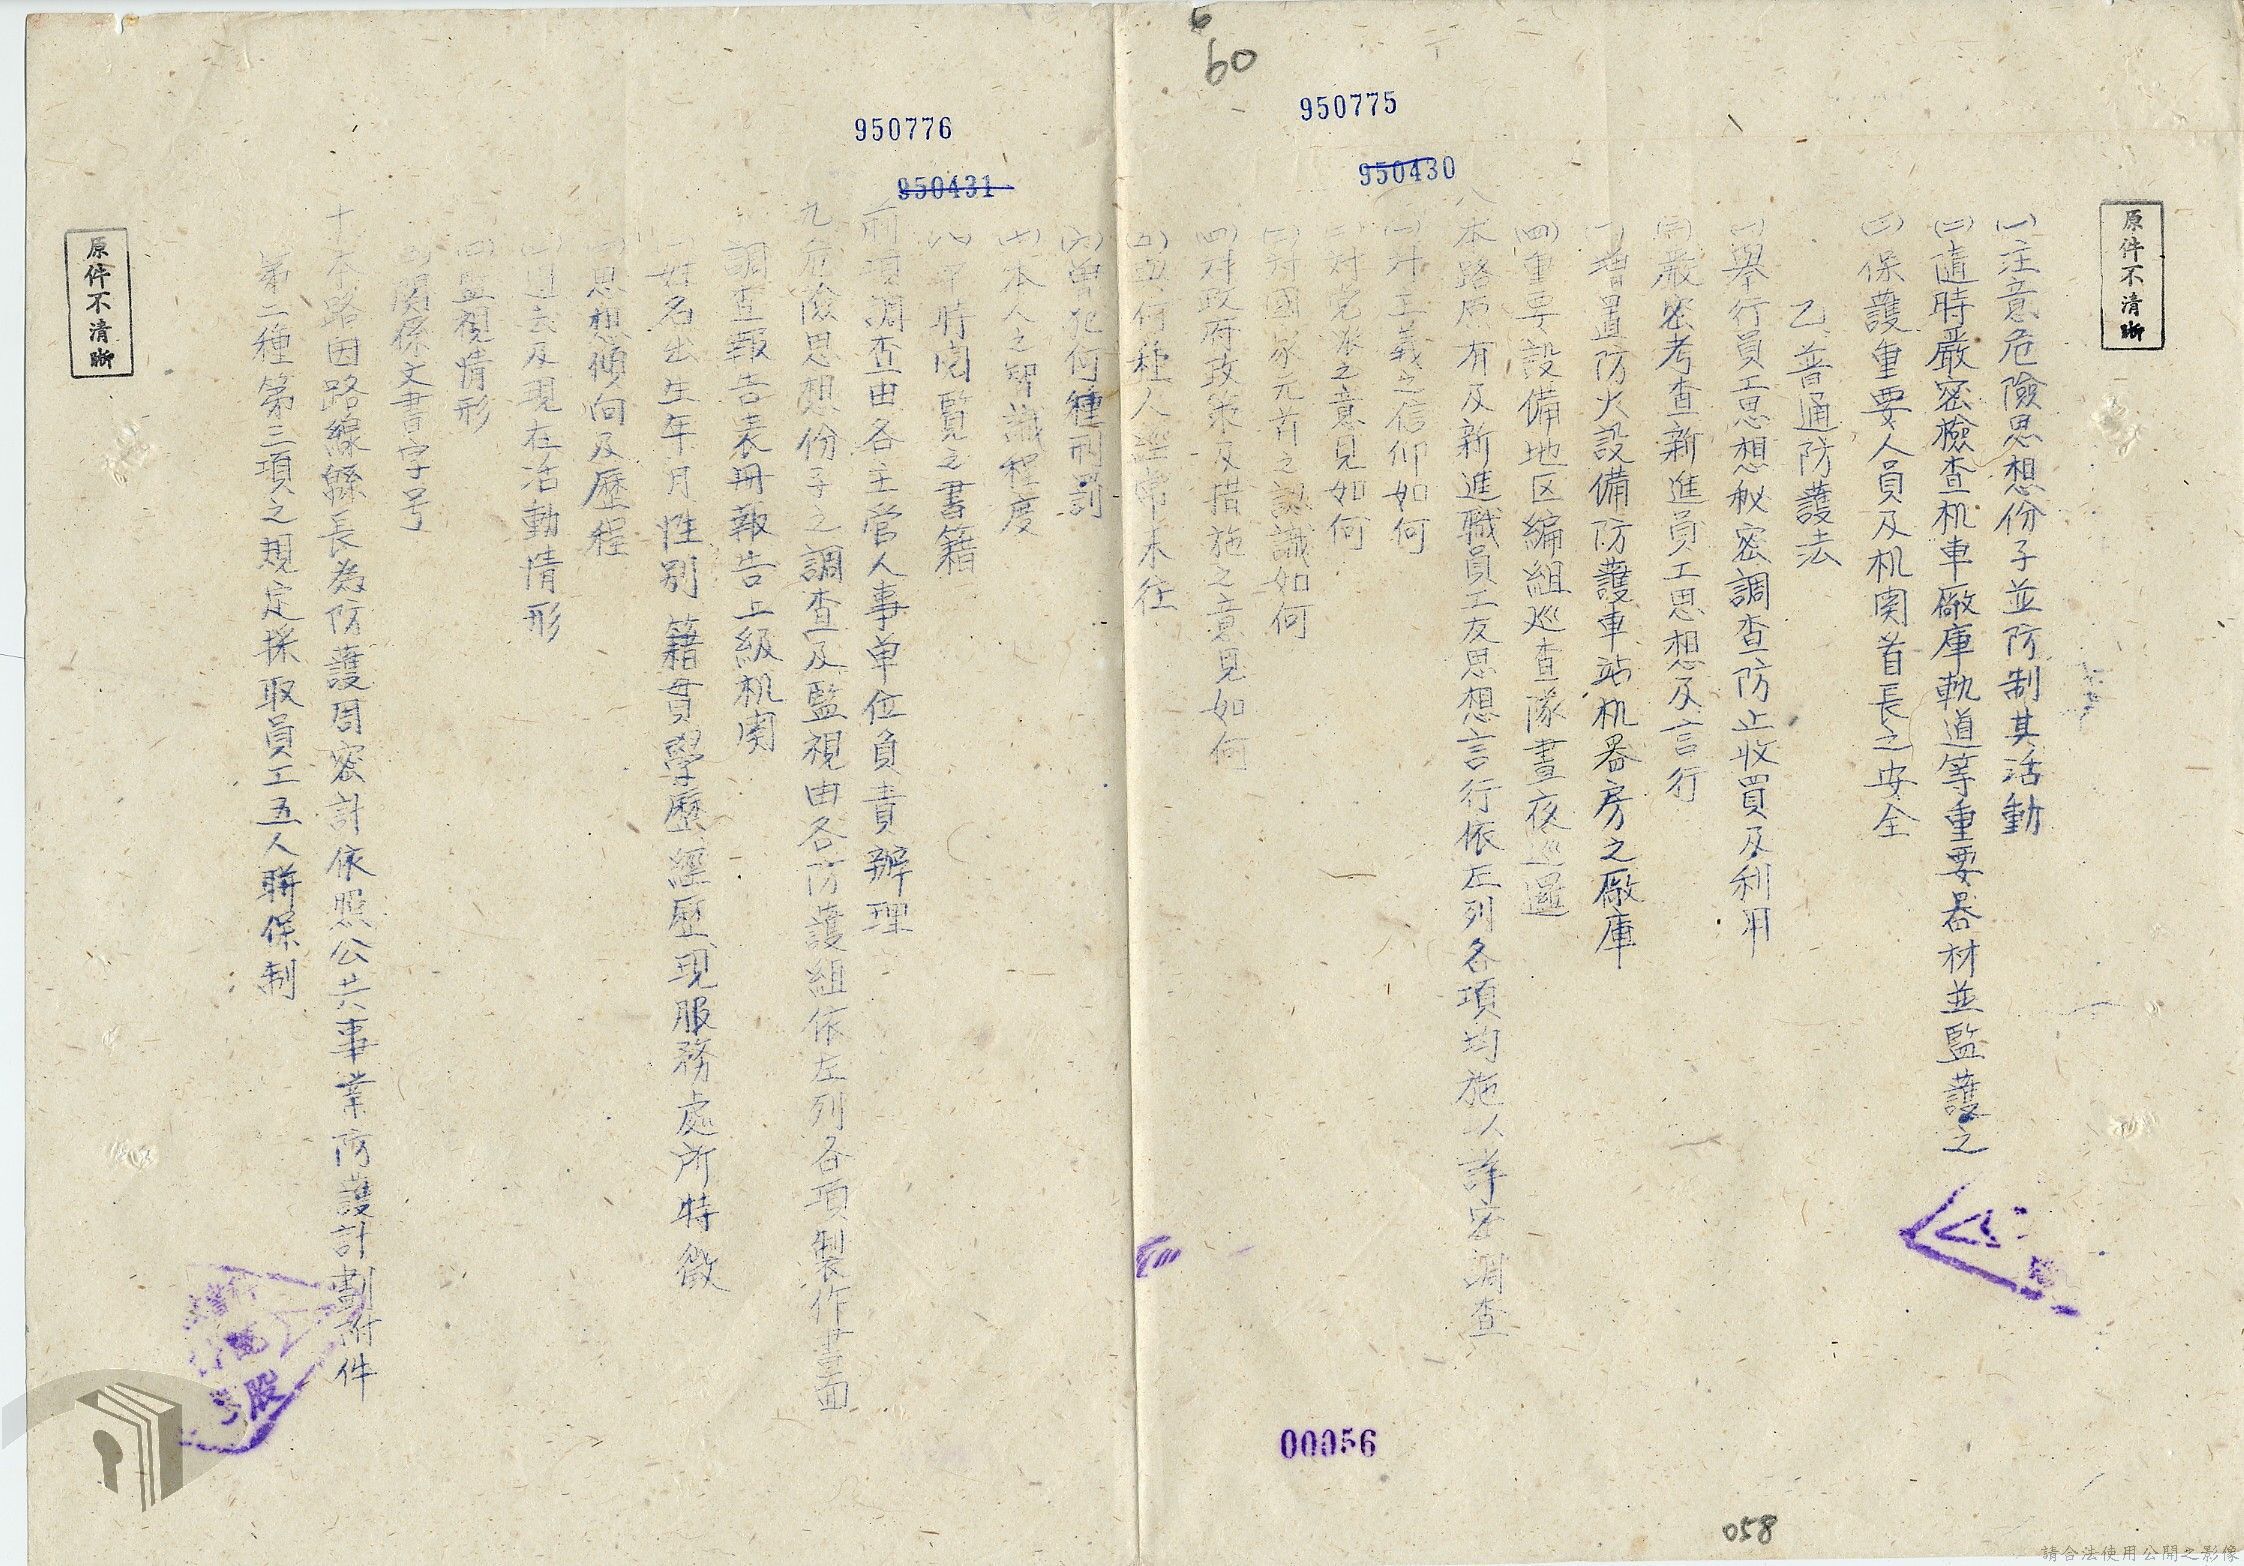 6
60
950775
950430
原件不清晰
(一)注意危險思想份子並防制其活動
(二)隨時嚴密檢查机車廠庫軌道等重要器材並監護之
(三)保護重要人員及机関首長之安全
乙、普通防護法
(一)舉行員工思想秘密調查防止收買及利用
(二)嚴密考查新進員工思想及言行
(三)增置防火設備防護車站机器房之廠庫
(四)重要設備地区編組巡查隊晝夜巡邏
八、本路原有及新進職員工友思想言行依左列各項均施以詳密調查
(一)对主義之信仰如何
(二)对党派之意見如何
(三)对國家元首之認識如何
(四)对政府政策及措施之意見如何
(五)與何種人經常来往
00056
058
950776
950431
(六)曾犯何種刑罰
(七)本人之知識程度
(八)平時閱覽之書籍
前項調查由各主管人事单位負責辦理
九、危險思想份子之調查及監視由各防護組依左列各項製作書面
調查報告表冊報告上級机関
(一)姓名出生年月性別籍貫學歷經歷現服務處所特徵
(二)思想傾向及歷程
(三)过去及現在活動情形
(四)監視情形
(五)関係文書字号
十、本路因路線綿長為防護周密計依照公共事業防護計劃附件
第二種第三項之規定採取員工五人聯保制
原件不清晰
股
請合法使用公開之影像